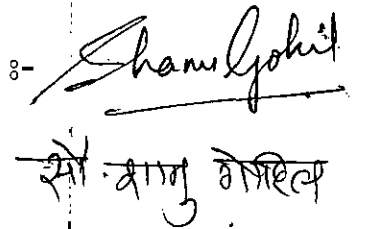 :- Shanu Gohil
सौ. शानु गोहिल